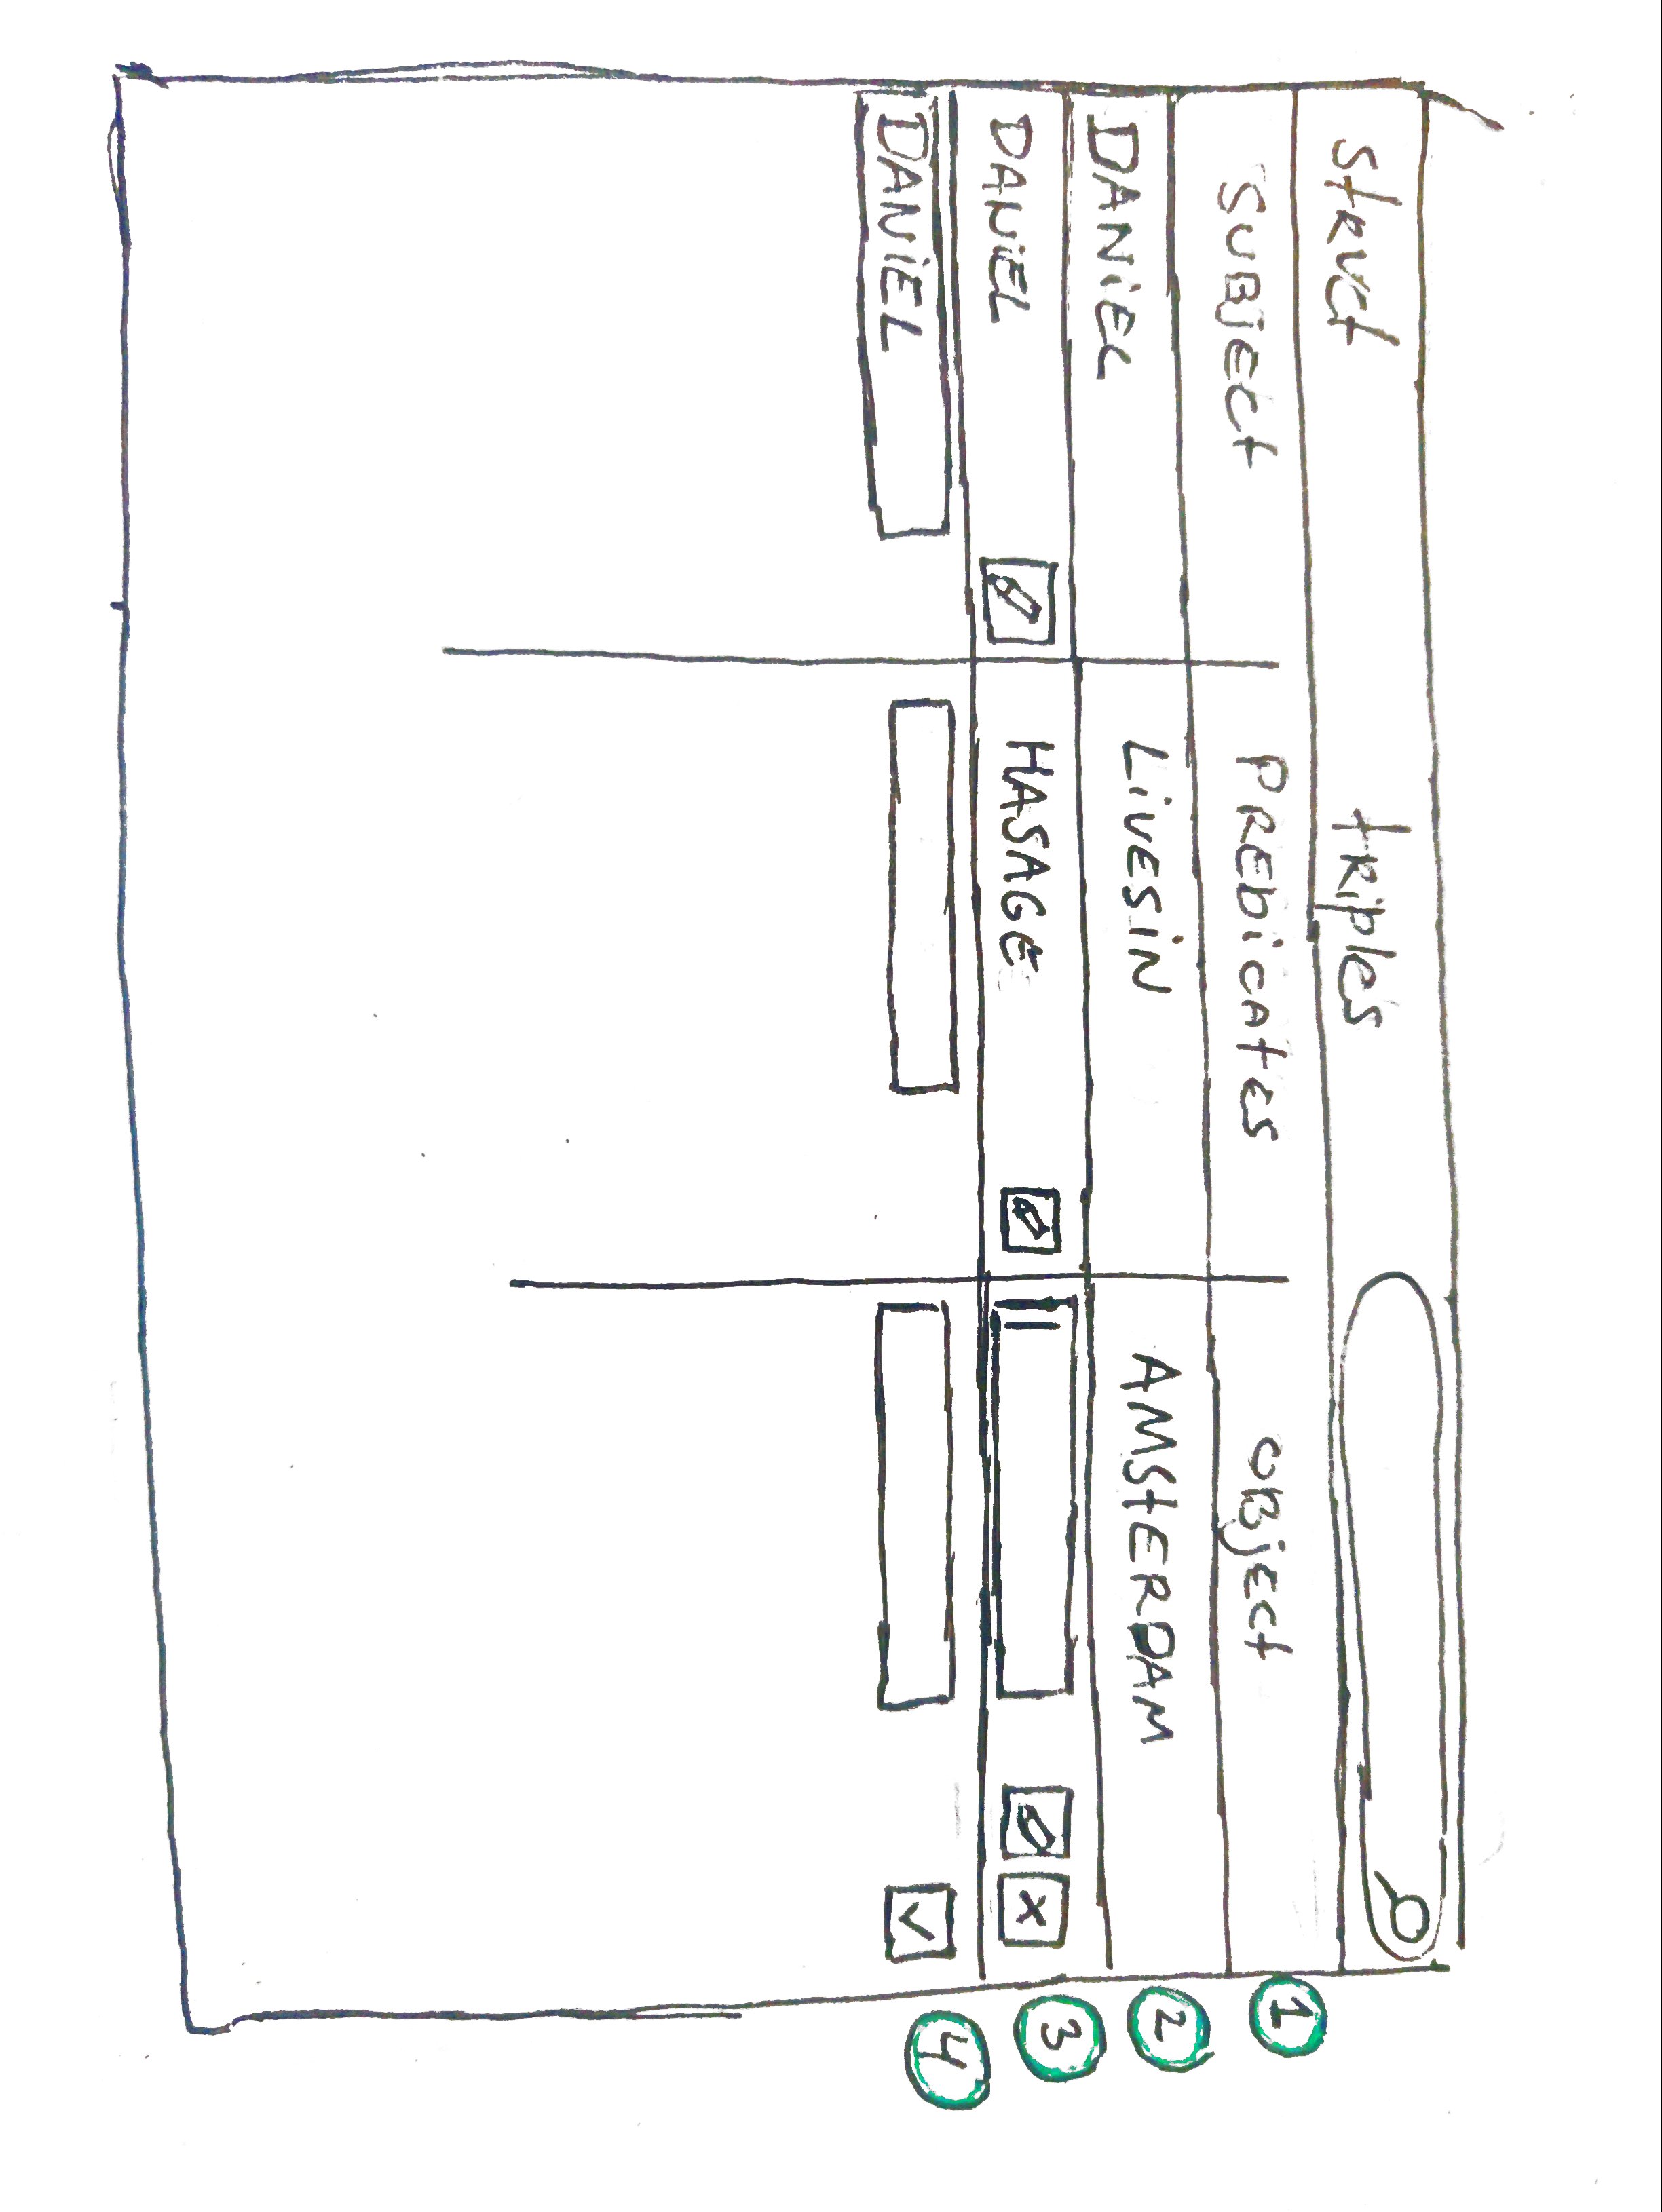 struct triples
SUBJECT PREDICATES OBJECT 1
DANIEL LIVESIN AMSTERDAM 2
DANIEL HASAGE 3
DANIEL 4